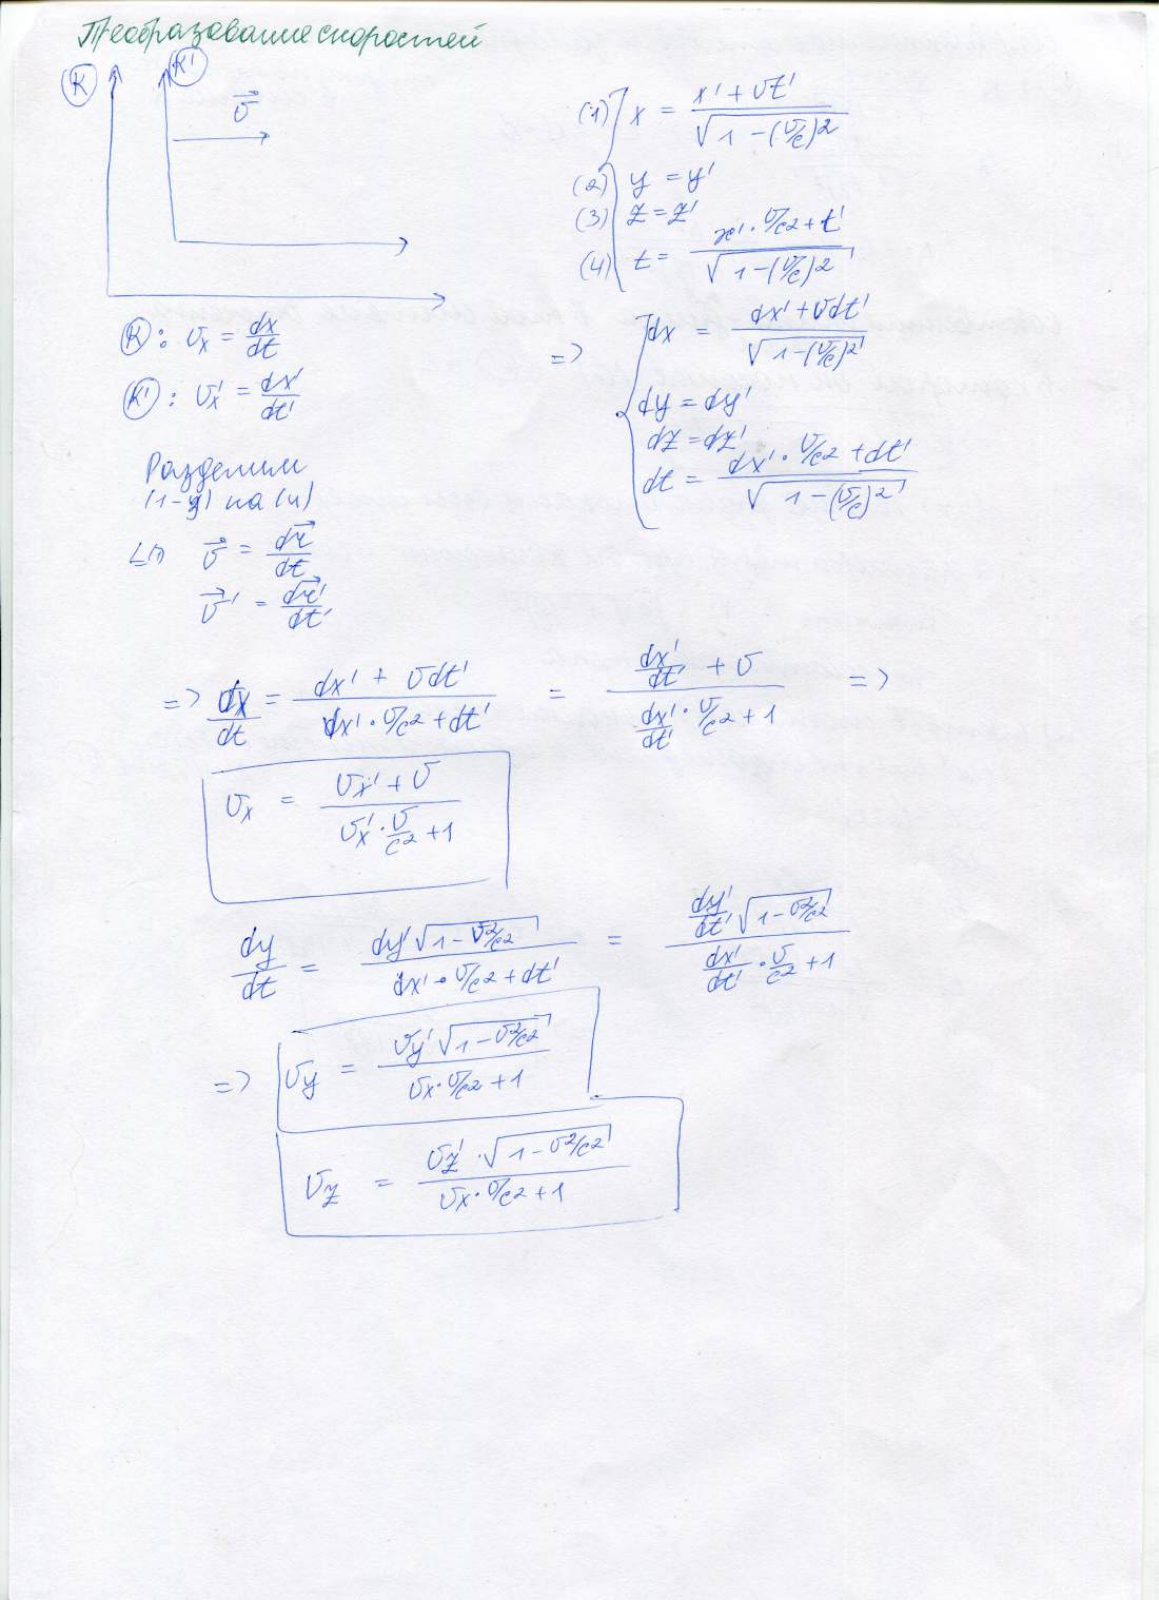 Преобразование скоростей
K K' v⃗
(1) x = (x' + vt') / √(1 − (v/c)²)
(2) y = y'
(3) z = z'
(4) t = (x' · v/c² + t') / √(1 − (v/c)²)
K: vx = dx/dt
K': vx' = dx'/dt'
=> dx = (dx' + vdt') / √(1 − (v/c)²)
dy = dy'
dz = dz'
dt = (dx' · v/c² + dt') / √(1 − (v/c)²)
Разделим
(1-3) на (4)
v⃗ = dr⃗/dt
v⃗' = dr⃗'/dt'
=> dx/dt = (dx' + vdt') / (dx' · v/c² + dt') = (dx'/dt' + v) / (dx'/dt' · v/c² + 1) =>
vx = (vx' + v) / (vx' · v/c² + 1)
dy/dt = dy'√(1 − v²/c²) / (dx' · v/c² + dt') = (dy'/dt' √(1 − v²/c²)) / (dx'/dt' · v/c² + 1)
=> vy = vy'√(1 − v²/c²) / (vx · v/c² + 1)
vz = vz' · √(1 − v²/c²) / (vx · v/c² + 1)